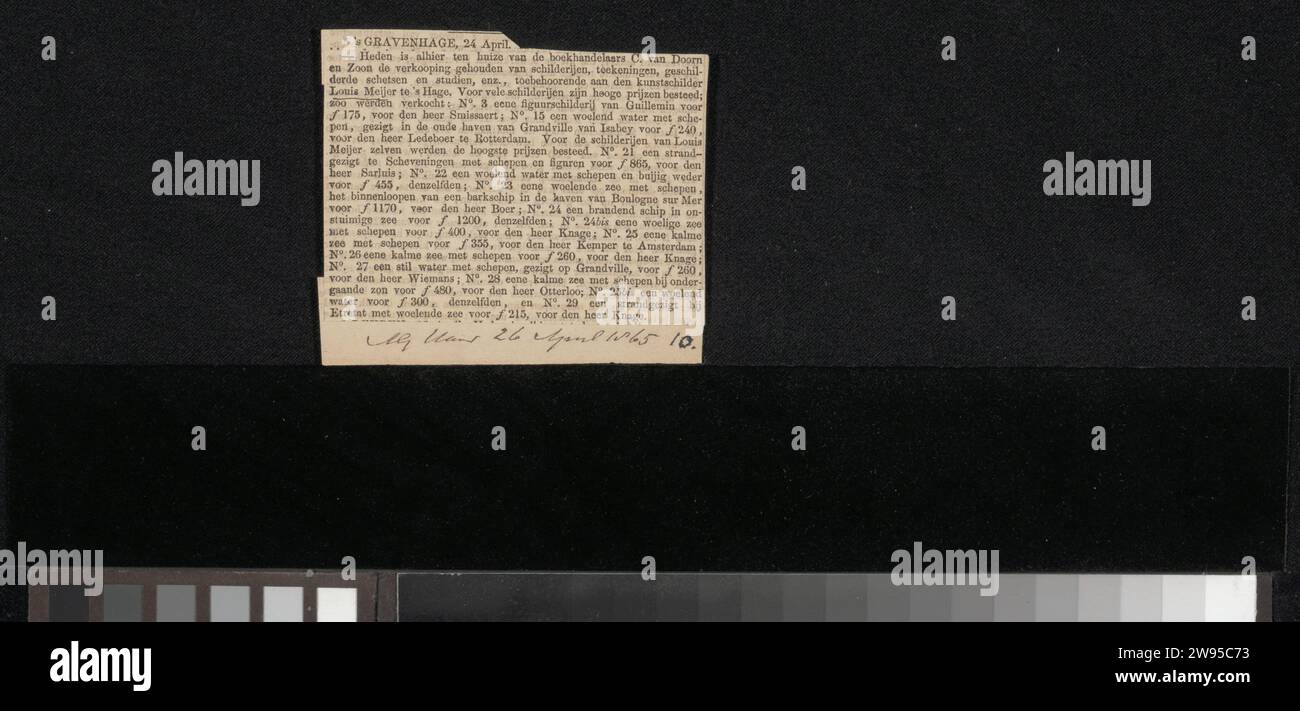 's GRAVENHAGE, 24 April.
Heden is alhier ten huize van de boekhandelaars C. van Doorn
en Zoon de verkooping gehouden van schilderijen, teekeningen, geschil-
derde schetsen en studien, enz., toebehoorende aan den kunstschilder
Louis Meijer te 's Hage. Voor vele schilderijen zijn hooge prijzen besteed;
zoo werden verkocht: N°. 3 eene figuurschilderij van Guillemin voor
ƒ 175, voor den heer Smissaert; N°. 15 een woelend water met sche-
pen, gezigt in de oude haven van Grandville van Isabey voor ƒ 240,
voor den heer Ledeboer te Rotterdam. Voor de schilderijen van Louis
Meijer zelven werden de hoogste prijzen besteed. N°. 21 een strand-
gezigt te Scheveningen met schepen en figuren voor ƒ 865, voor den
heer Sarluis; N°. 22 een woelend water met schepen en buijig weder
voor ƒ 455, denzelfden; N°. 23 eene woelende zee met schepen,
het binnenloopen van een barkschip in de haven van Boulogne sur Mer
voor ƒ 1170, voor den heer Boer; N°. 24 een brandend schip in on-
stuimige zee voor ƒ 1200, denzelfden; N°. 24bis eene woelige zee
met schepen voor ƒ 400, voor den heer Knage; N°. 25 eene kalme
zee met schepen voor ƒ 355, voor den heer Kemper te Amsterdam;
N°. 26 eene kalme zee met schepen voor ƒ 260, voor den heer Knage;
N°. 27 een stil water met schepen, gezigt op Grandville, voor ƒ 260,
voor den heer Wiemans; N°. 28 eene kalme zee met schepen bij onder-
gaande zon voor ƒ 480, voor den heer Otterloo; N°. een woelend
water voor ƒ 300, denzelfden, en N°. 29 een strandgezigt bij
Etretat met woelende zee voor ƒ 215, voor den heer Knage.
26 April 1865 10.
alamy
Image ID: 2W95C73
www.alamy.com